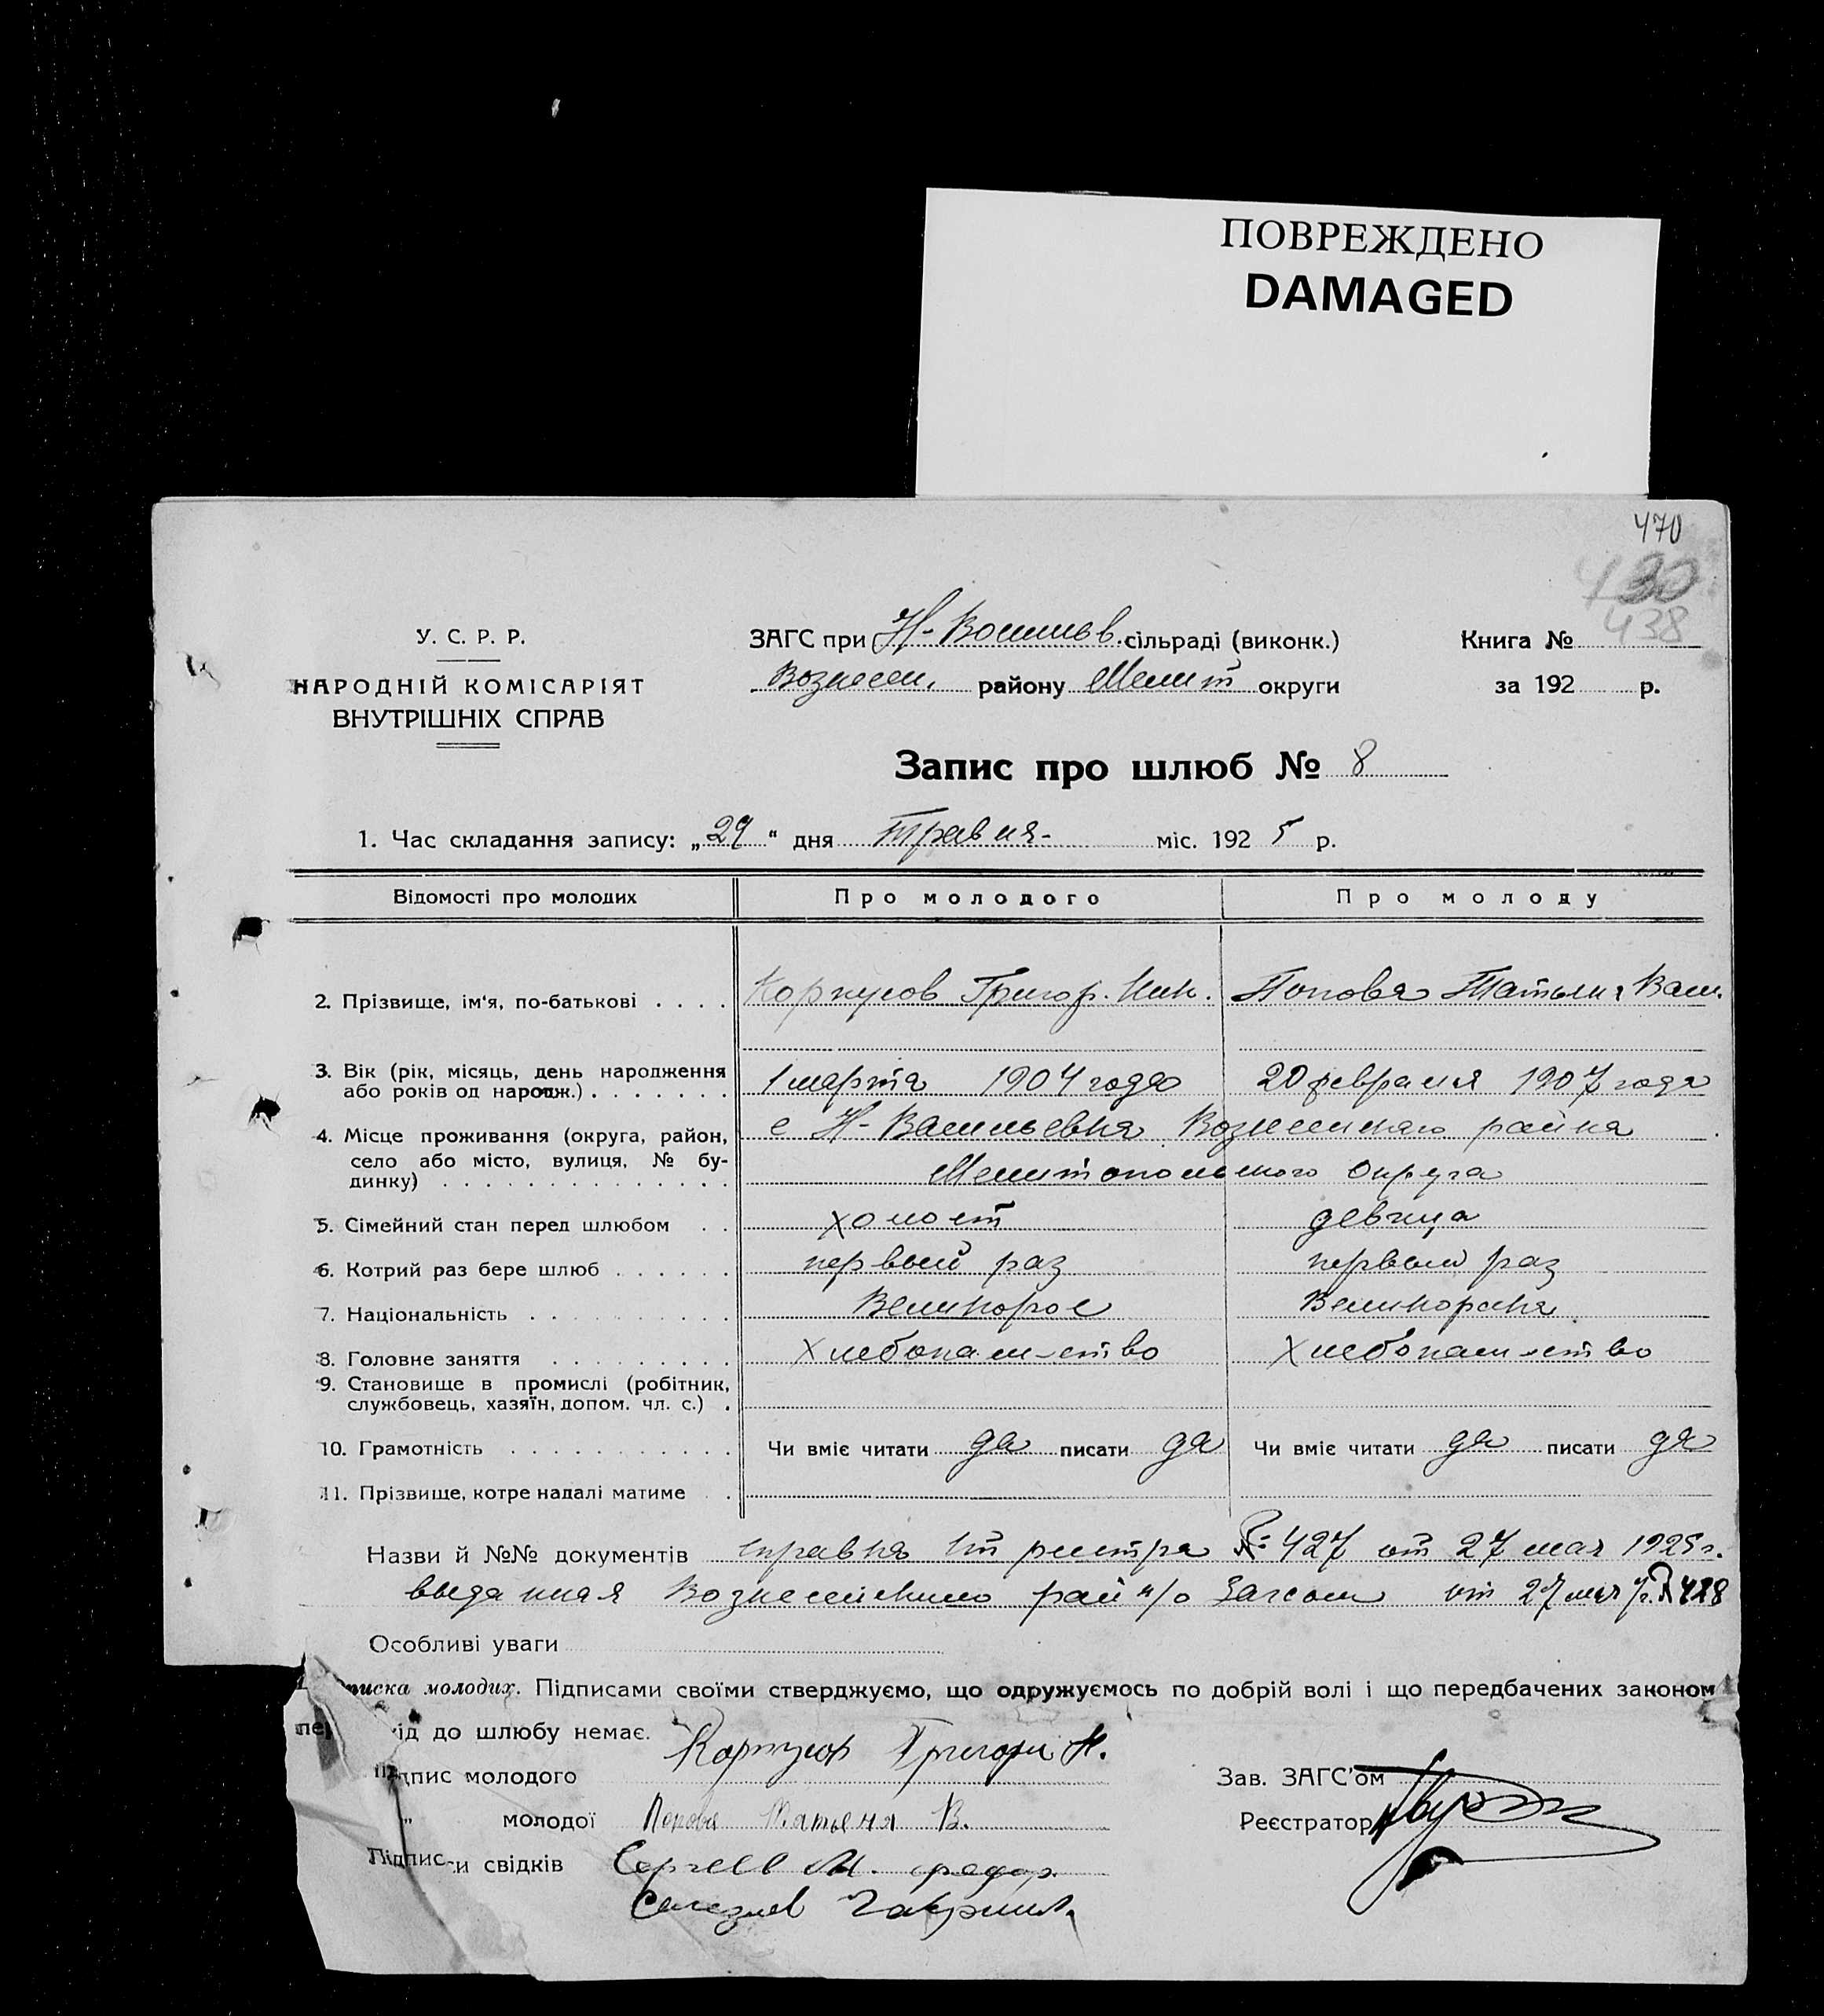 ПОВРЕЖДЕНО
DAMAGED
470
430
438
У. С. Р. Р.
НАРОДНІЙ КОМІСАРІЯТ
ВНУТРІШНІХ СПРАВ
ЗАГС при Н-Васильев. сільраді (виконк.)
Вознесен. району Мелит округи
Книга №
за 192 р.
Запис про шлюб № 8
1. Час складання запису: „29" дня травня- міс. 1925 р.
Відомості про молодих Про молодого Про молоду
2. Прізвище, ім'я, по-батькові . . . . Корпусов Григор. Ник. Попова Татьяна Вас.
3. Вік (рік, місяць, день народження
або років од народж.) . . . . . . . 1 марта 1904 года 20 февраля 1907 года
4. Місце проживання (округа, район, с Н-Васильевка Вознесенскаго района
село або місто, вулиця, № бу-
динку) . . . . . . . . . . . . . . Мелитопольского Округа
5. Сімейний стан перед шлюбом . . холост девица
6. Котрий раз бере шлюб . . . . . . первый раз первый раз
7. Національність . . . . . . . . . . Великорос Великорска
8. Головне заняття . . . . . . . . . Хлебопашество Хлебопашество
9. Становище в промислі (робітник,
службовець, хазяїн, допом. чл. с.) .
10. Грамотність . . . . . . . . . . . Чи вміє читати да писати да Чи вміє читати да писати да
11. Прізвище, котре надалі матиме . .
Назви й №№ документів справка реестра № 427 от 27 мая 1925 г.
выданная Вознесенским рай Загсом от 27 мая № 428
Особливі уваги
писка молодих. Підписами своїми стверджуємо, що одружуємось по добрій волі і що передбачених законом
пер ід до шлюбу немає.
Підпис молодого Корпусов Григори Н.
„ молодої Попова Татьяна В.
Підписи свідків Сергеев М. федор.
Селезнев Гаврил.
Зав. ЗАГС'ом
Реєстратор